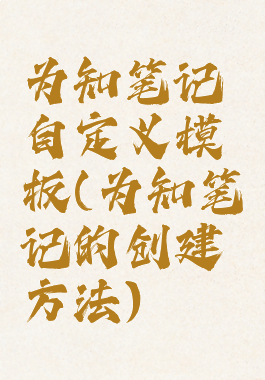 为知笔记
自定义模
板(为知笔
记的创建
方法)